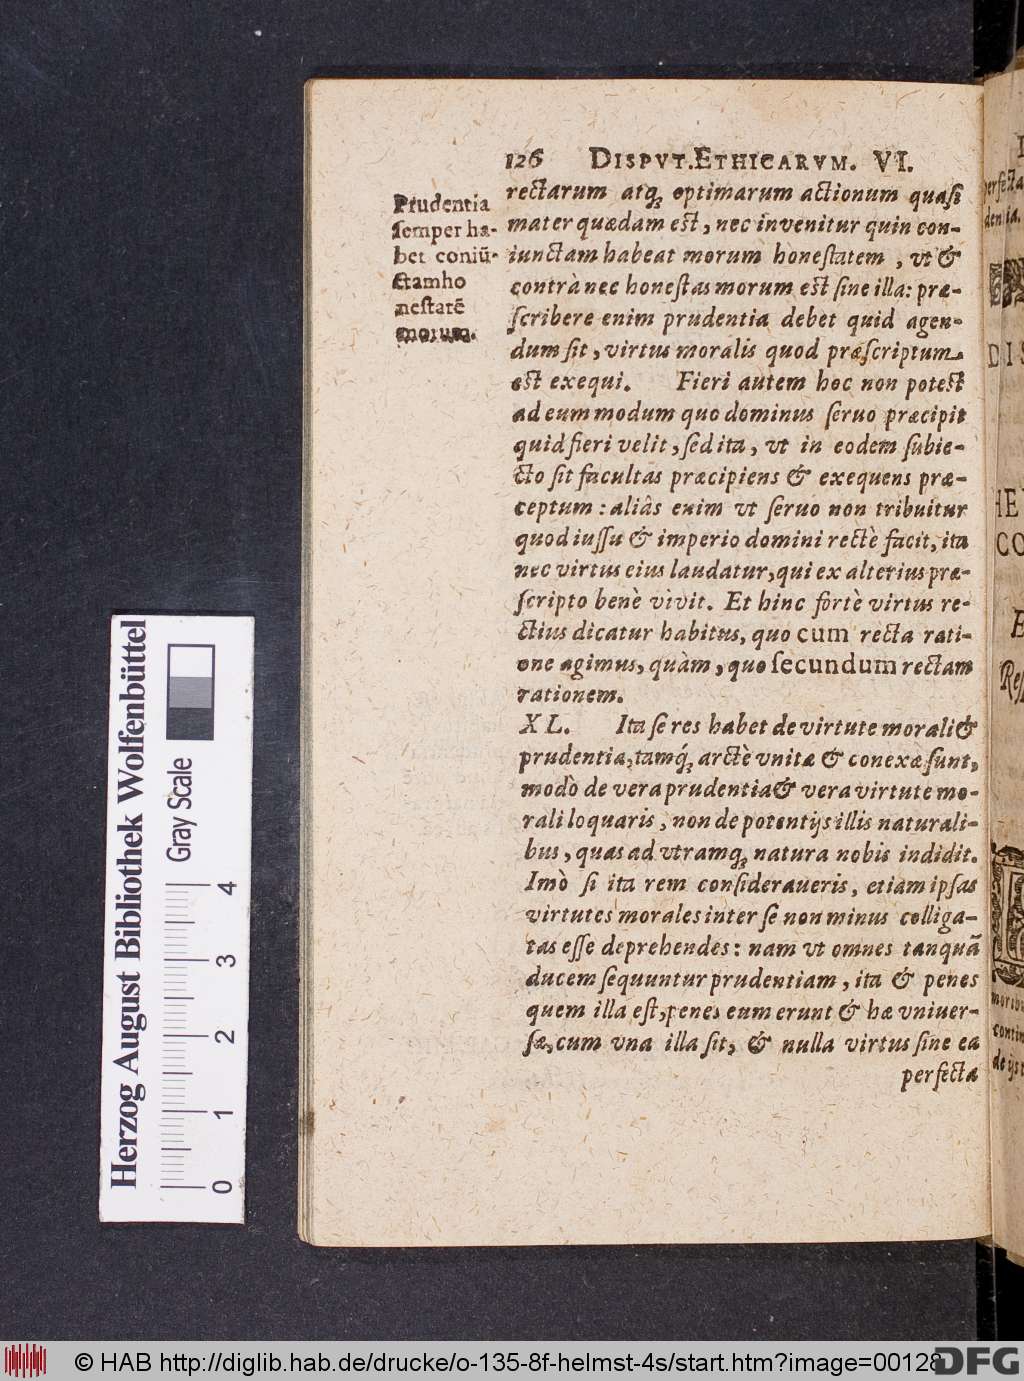 126 DISPVT. ETHICARVM. VI.
Prudentia
semper ha-
bet coniū-
ctam ho
nestatē
morum.
rectarum atq́ꝫ optimarum actionum quasi
mater quædam est, nec invenitur quin con-
iunctam habeat morum honestatem, vt &
contrà nec honestas morum est sine illa: præ-
scribere enim prudentia debet quid agen-
dum sit, virtus moralis quod præscriptum
est exequi. Fieri autem hoc non potest
ad eum modum quo dominus servo præcipit
quid fieri velit, sed ita, vt in eodem subie-
cto sit facultas præcipiens & exequens præ-
ceptum: aliâs enim vt seruo non tribuitur
quod iussu & imperio domini rectè facit, ita
nec virtus eius laudatur, qui ex alterius præ-
scripto benè vivit. Et hinc fortè virtus re-
ctius dicatur habitus, quo cum recta rati-
one agimus, quàm, quo secundum rectam
rationem.
XL. Ita se res habet de virtute morali &
prudentia, tamq́ꝫ arctè vnitæ & conexæ sunt,
modò de vera prudentia & vera virtute mo-
rali loquaris, non de potentijs illis naturali-
bus, quas ad vtramqꝫ natura nobis indidit.
Imò si ita rem consideraueris, etiam ipsas
virtutes morales inter se non minus colliga-
tas esse deprehendes: nam vt omnes tanquā
ducem sequuntur prudentiam, ita & penes
quem illa est, penes eum erunt & hæ vniuer-
sæ, cum vna illa sit, & nulla virtus sine ea
perfecta
Herzog August Bibliothek Wolfenbüttel
Gray Scale
0 1 2 3 4
© HAB http://diglib.hab.de/drucke/o-135-8f-helmst-4s/start.htm?image=00128
DFG